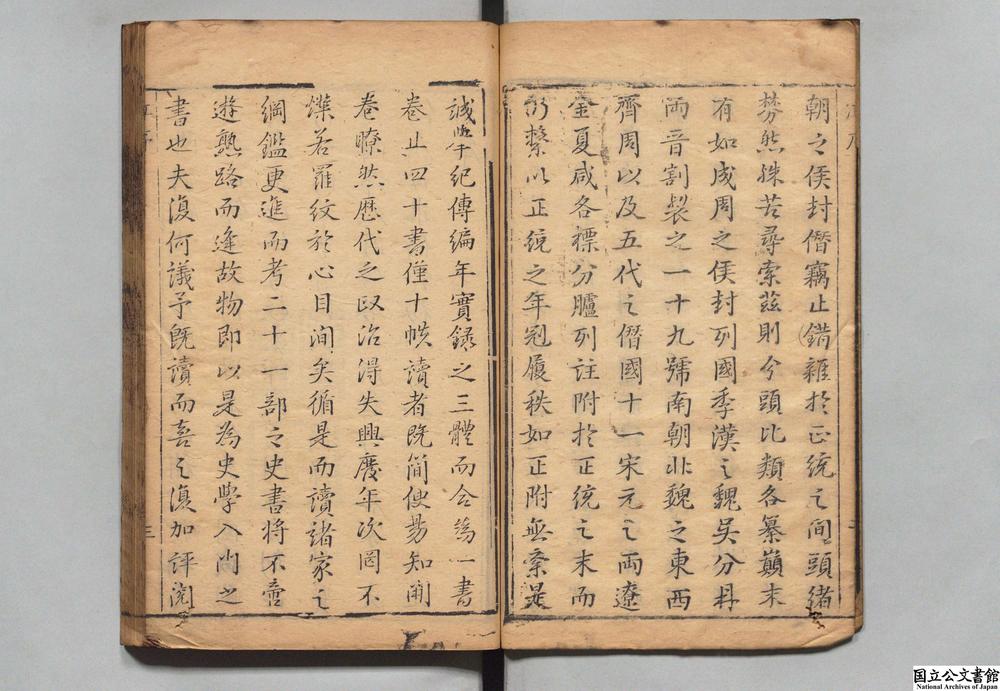 朝之侯封僭竊止錯雜於正統之間頭緒
棼然殊苦尋索茲則令頭比類各纂巔末
有如成周之侯封列國季漢之魏吳分鼎
兩晉割製之一十九號南朝北魏之東西
齊周以及五代之僭國十一宋元之兩遼
金夏咸各標分臚列註附於正統之末而
仍繫以正統之年冠履秩如正附無紊是
誠舉紀傳編年實錄之三體而合為一書
卷止四十書僅十帙讀者既簡便易知開
卷瞭然歷代之政治得失興廢年次罔不
燦若羅紋於心目間矣循是而讀諸家之
綱鑑更進而考二十一部之史書將不啻
遊熟路而逢故物即以是為史學入門之
書也夫復何議予既讀而喜之復加評閱
三
国立公文書館
National Archives of Japan